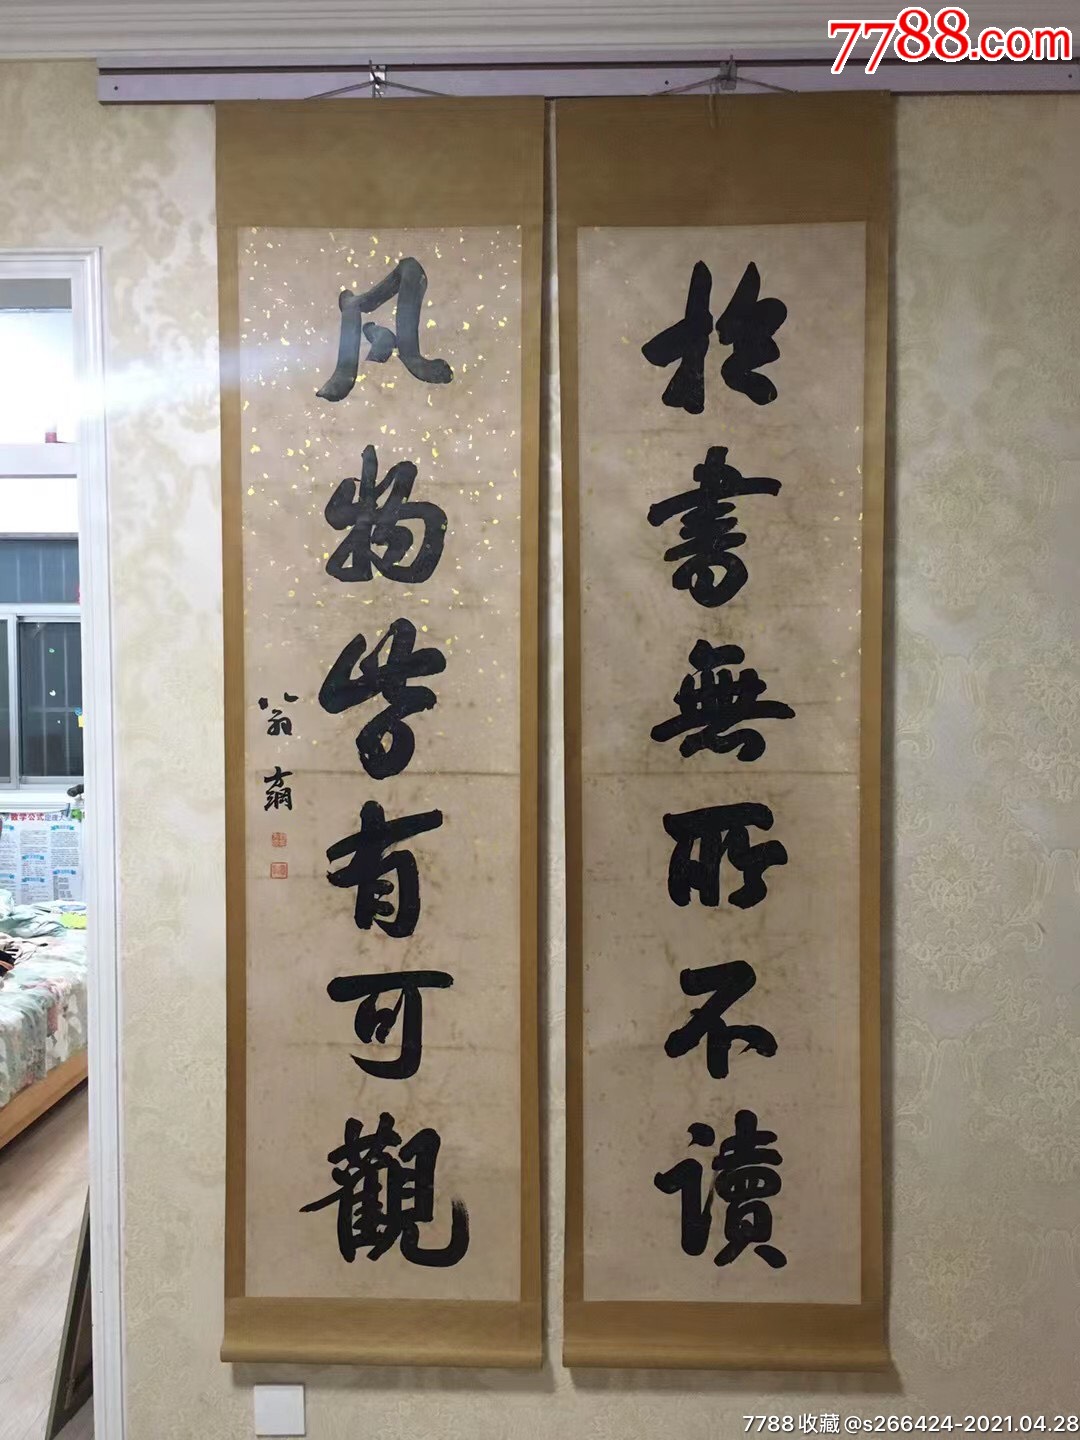 7788.com
於書無所不讀
凡物皆有可觀
翁方綱
数学公式
7788收藏@s266424-2021.04.28